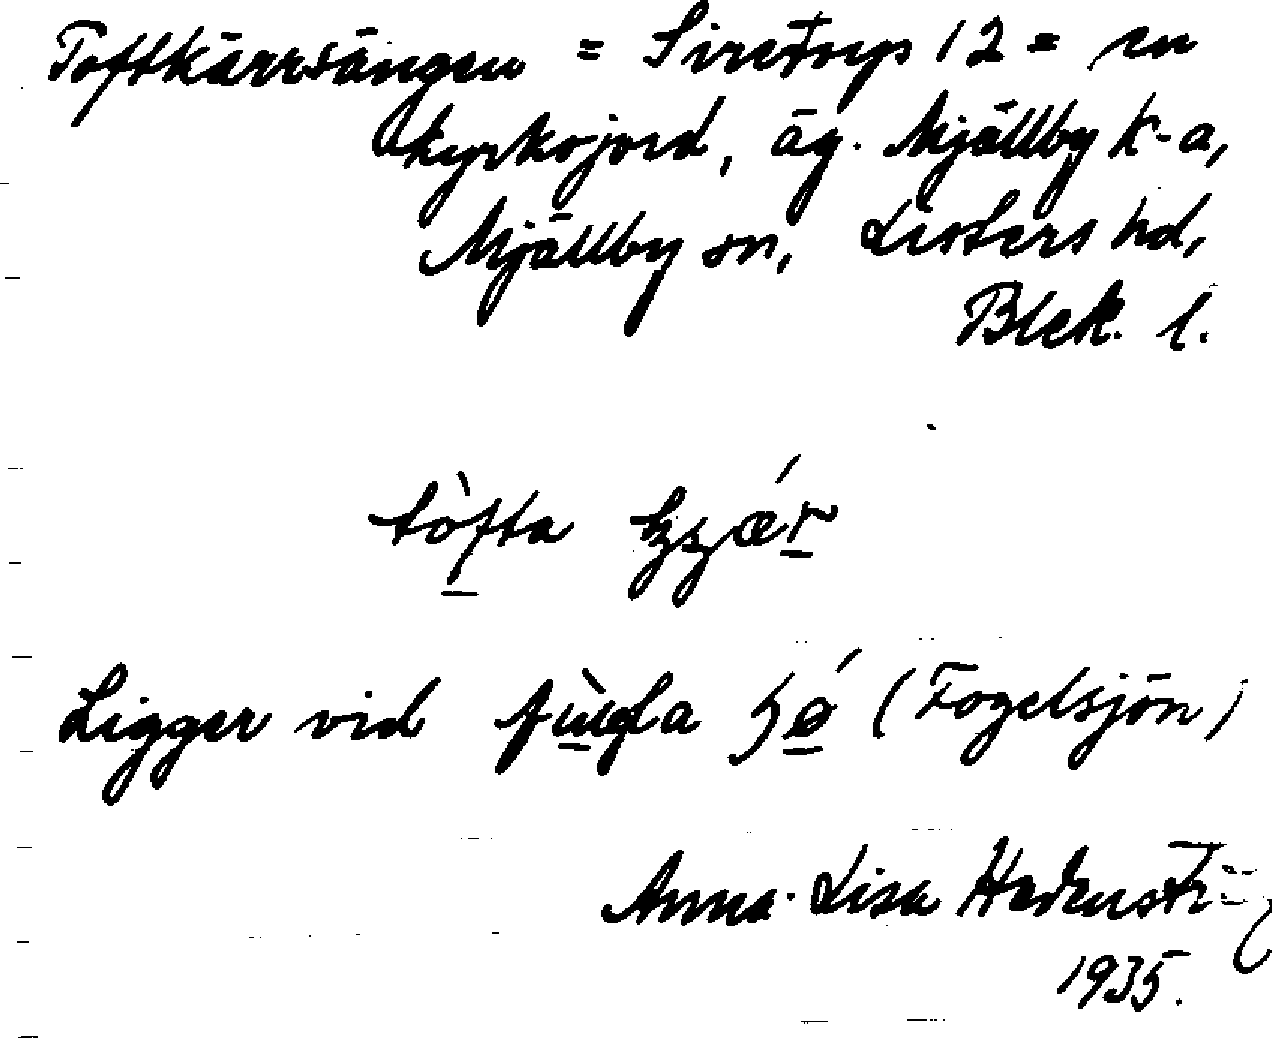 Toftkärrsängen = Siretorp 12 = en
kyrkojord, äg. Mjällby k-a,
Mjällby sn, Listers hd,
Blek. l.
tòfta
Ligger vid (Fogelsjön)
Anna-Lisa
1935.